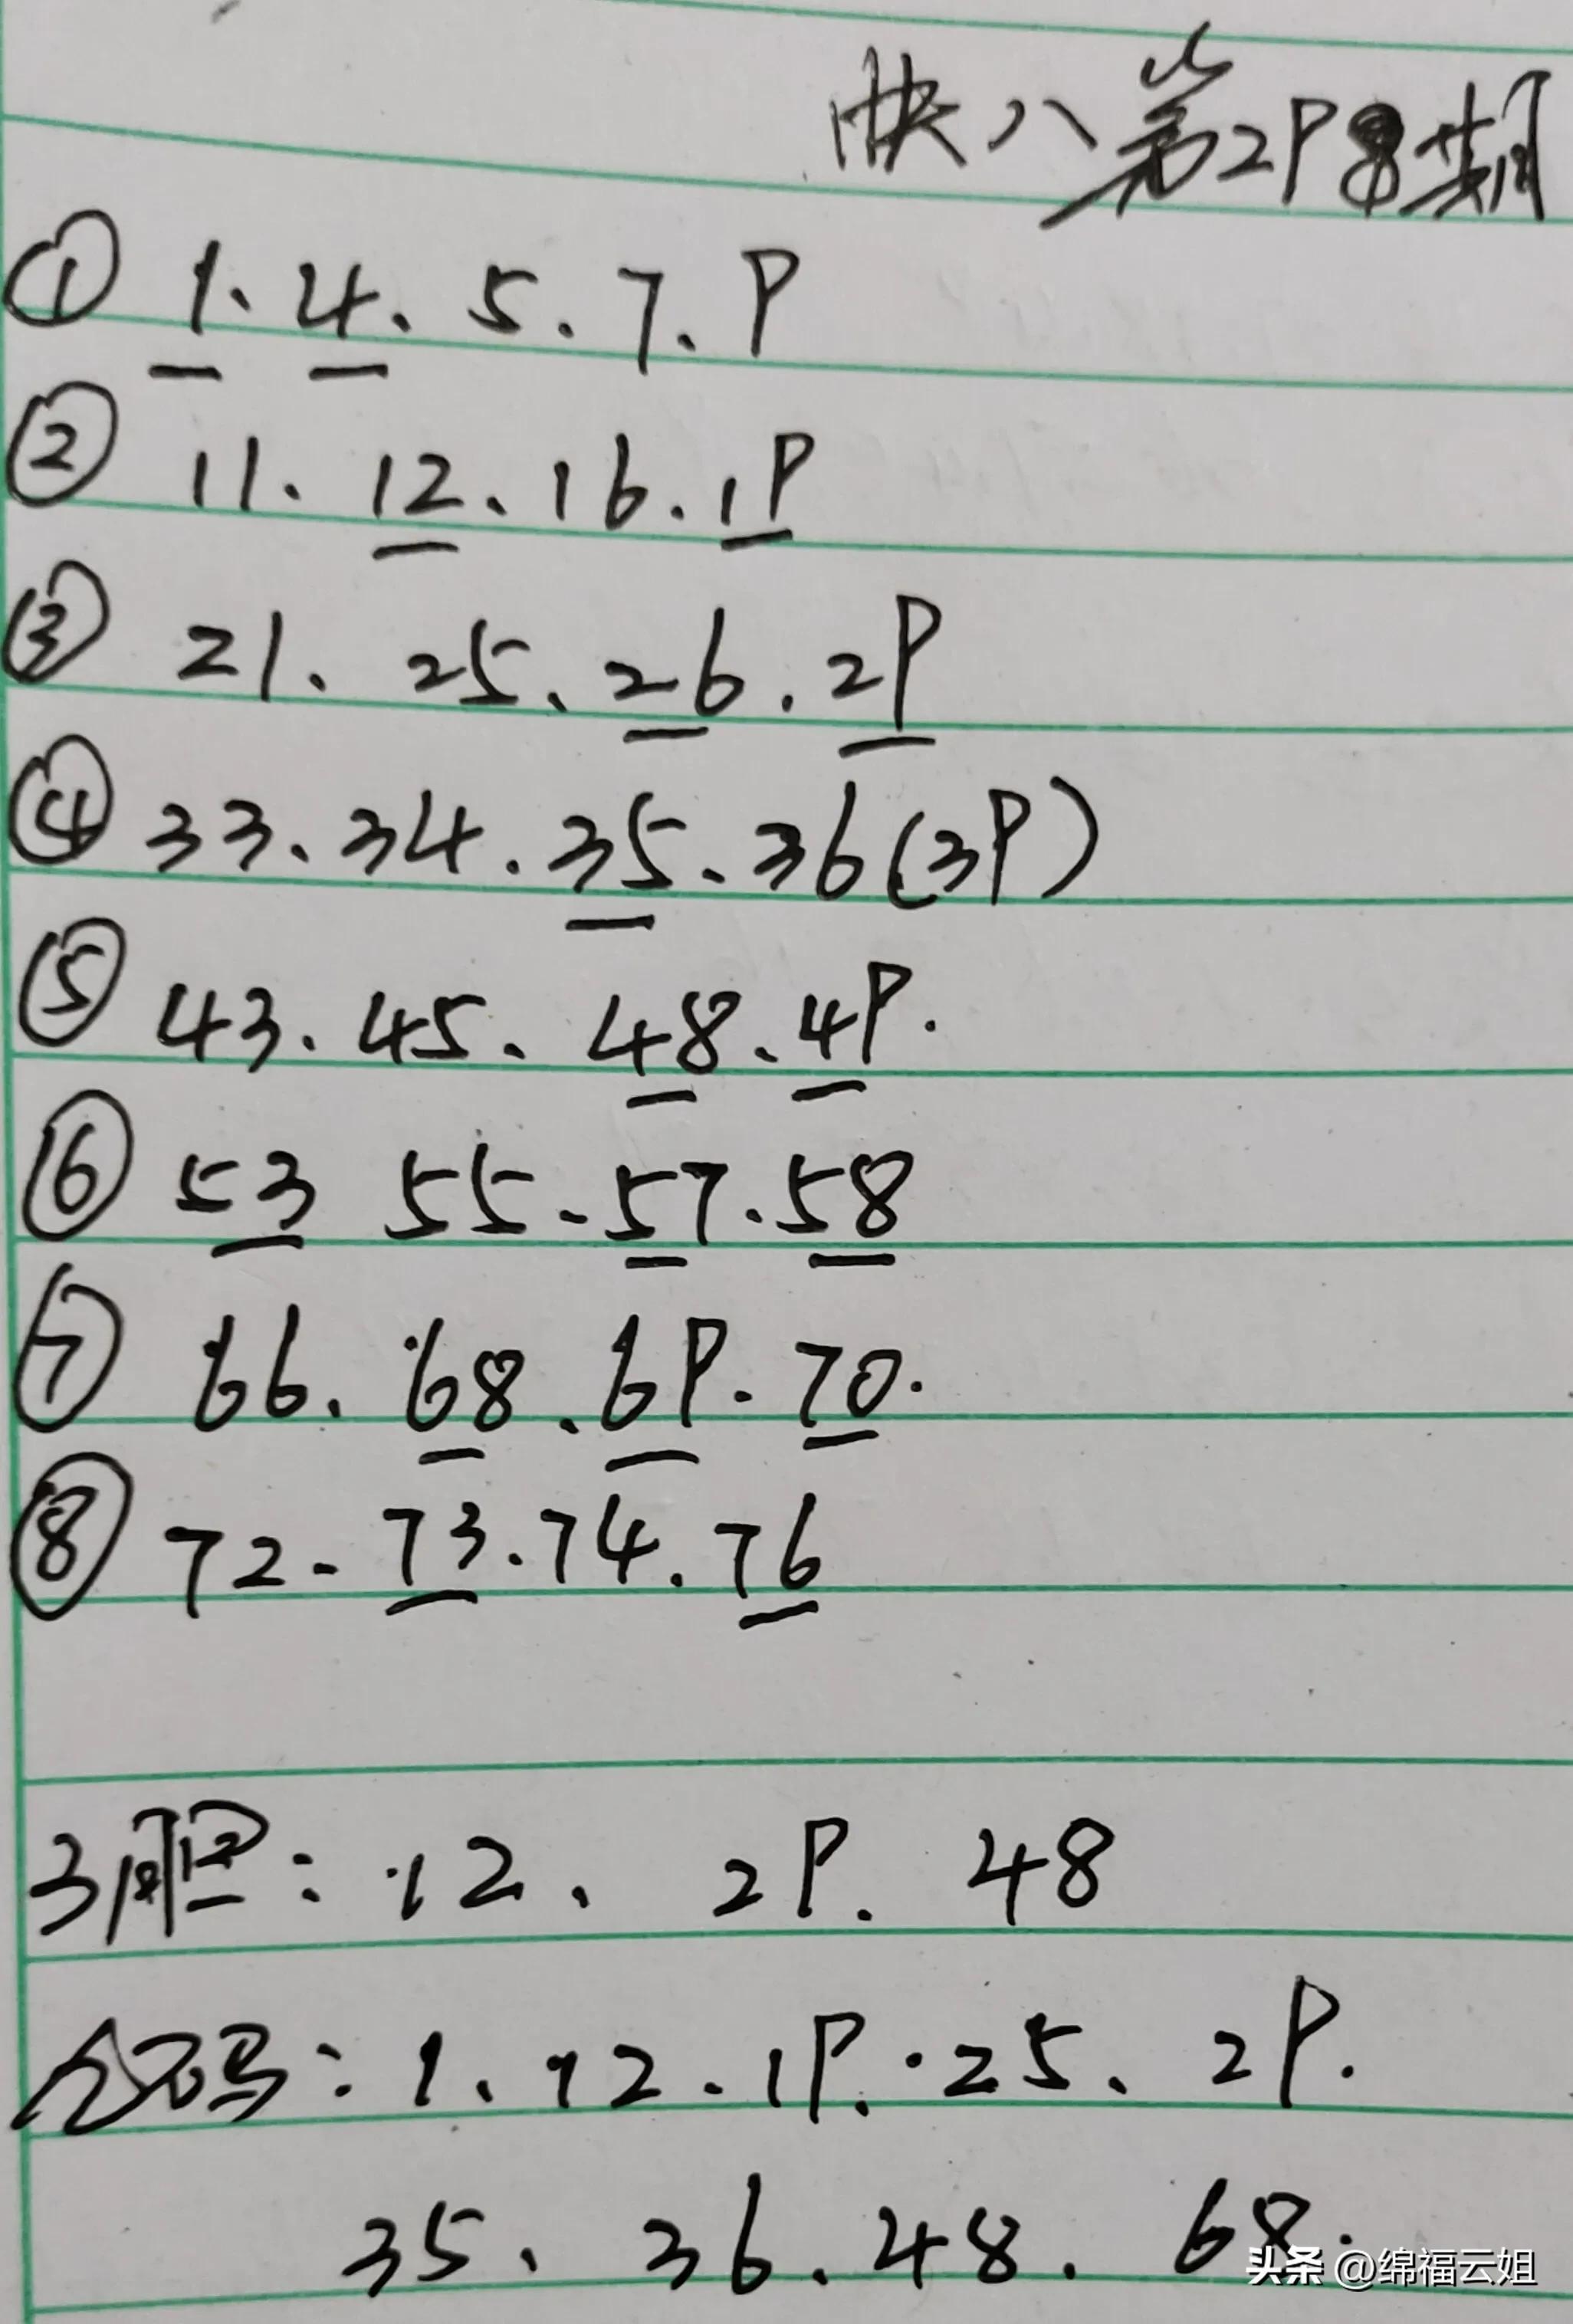 快八第298期
① 1、4、5、7、9
② 11、12、16、19
③ 21、25、26、29
④ 33、34、35、36(39)
⑤ 43、45、48、49.
⑥ 53 55-57.58
⑦ 66、68、69-70.
⑧ 72-73.74.76
3胆:12、29.48
合码:1、12、19.25、29.
35、36、48、68.
头条 @绵福云姐